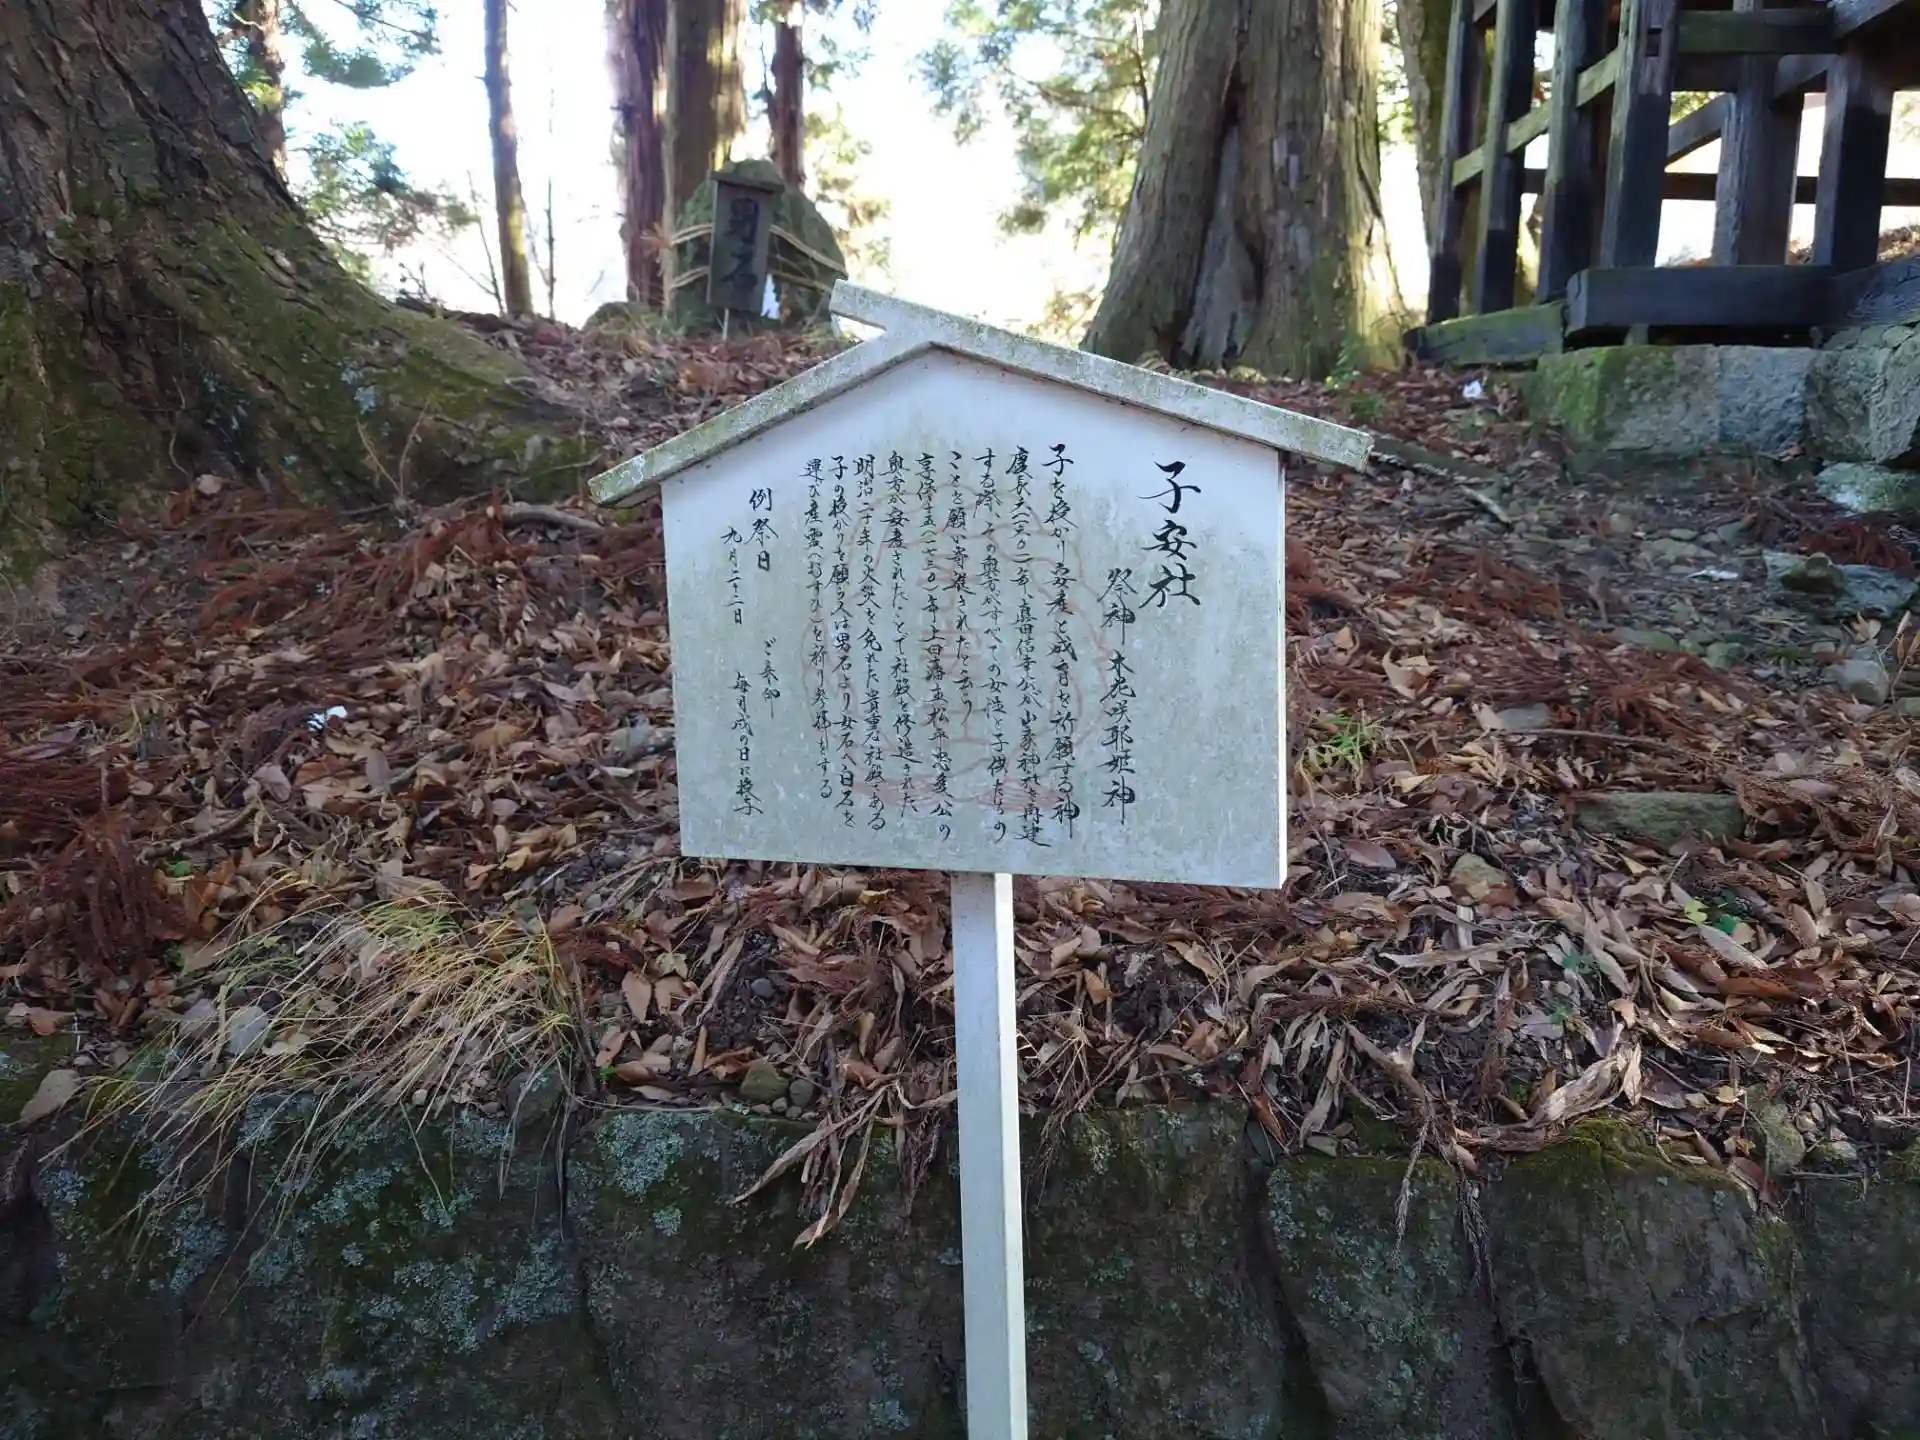 子安社
祭神 木花咲耶姫神
子を授かり安産と成育を祈願する神
慶長六(一六〇一)年、真田信幸公が山家神社を再建
する際、その奥方がすべての女性と子供たちの
ことを願い寄進されたと云う
享保十五(一七三〇)年上田藩主松平忠愛公の
奥方が安産されたことで社殿を修造された
明治二十年の火災を免れた貴重な社殿である
子の授かりを願う人は男石より女石へ白石を
運び産霊(むすひ)を祈り参拝をする
例祭日
九月二十二日
ご朱印
毎月戌の日に授与
男石